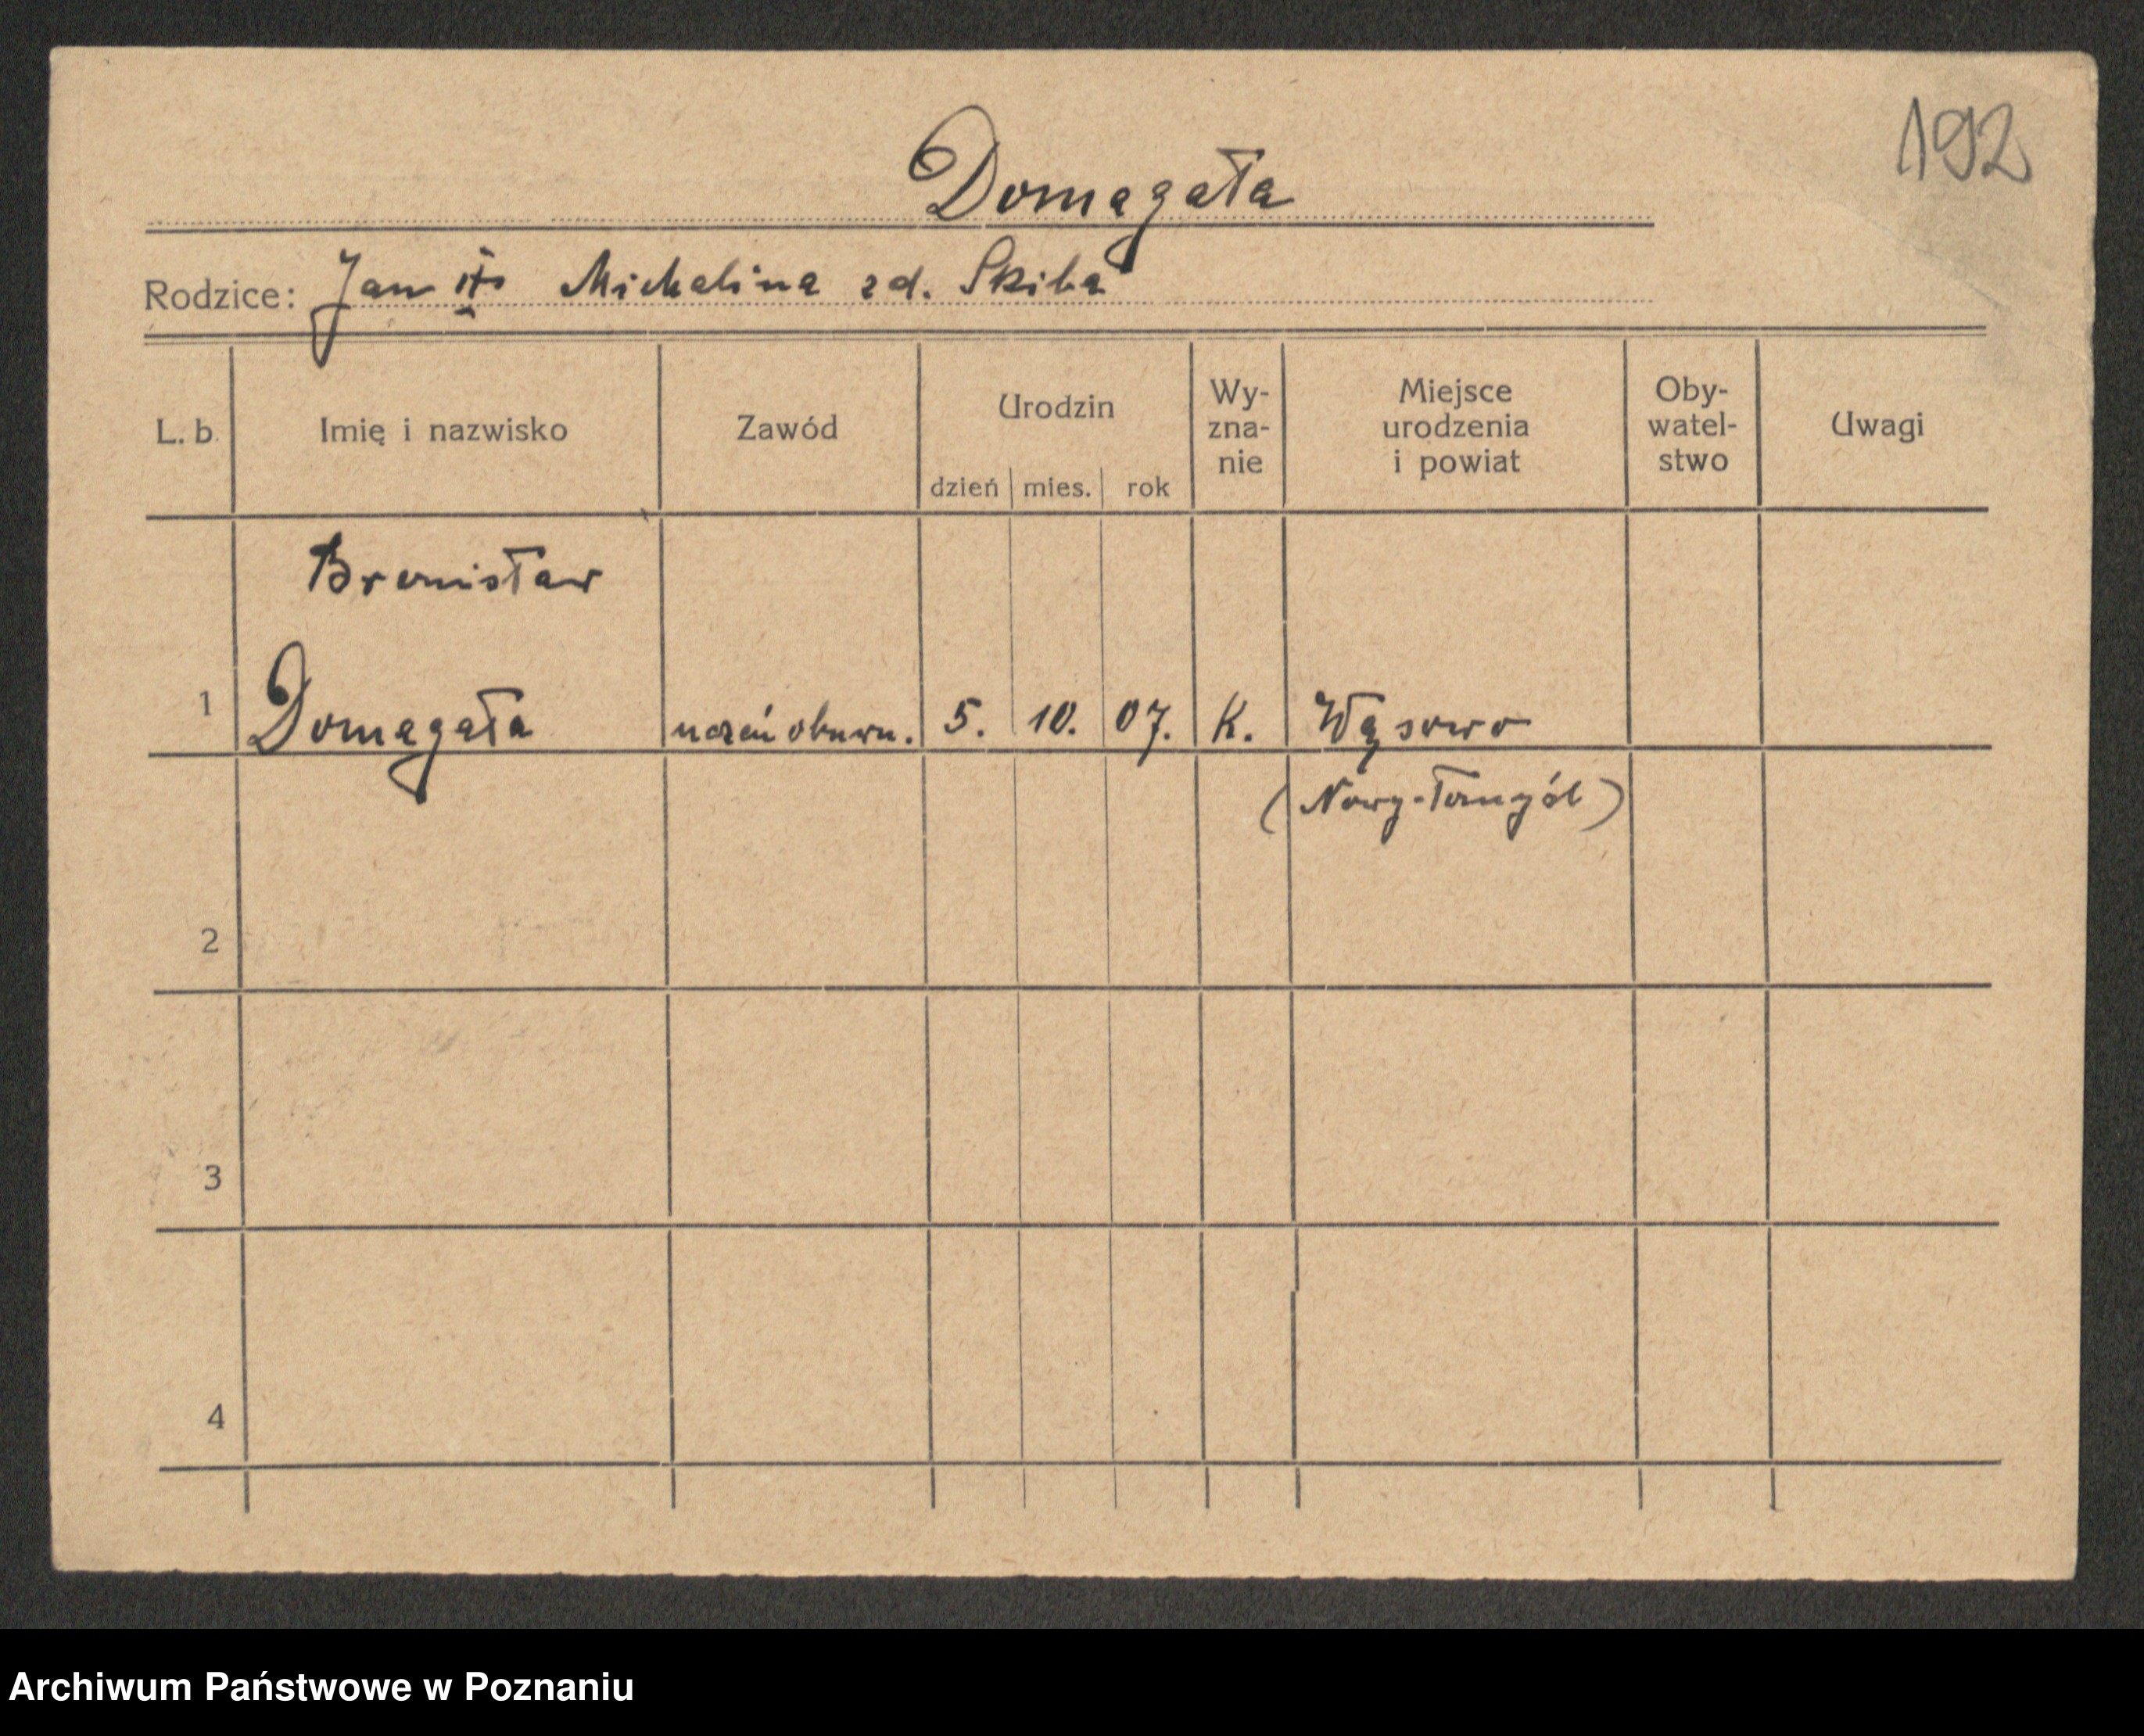 192
Domagała
Rodzice: Jan i Michalina zd. Skiba
L. b. Imię i nazwisko Zawód Urodzin dzień mies. rok Wy-zna-nie Miejsce urodzenia i powiat Oby-watel-stwo Uwagi
Bronisław
1 Domagała uczeń obuwn. 5. 10. 07. K. Wąsowo
(Nowy-Tomyśl)
2
3
4
Archiwum Państwowe w Poznaniu